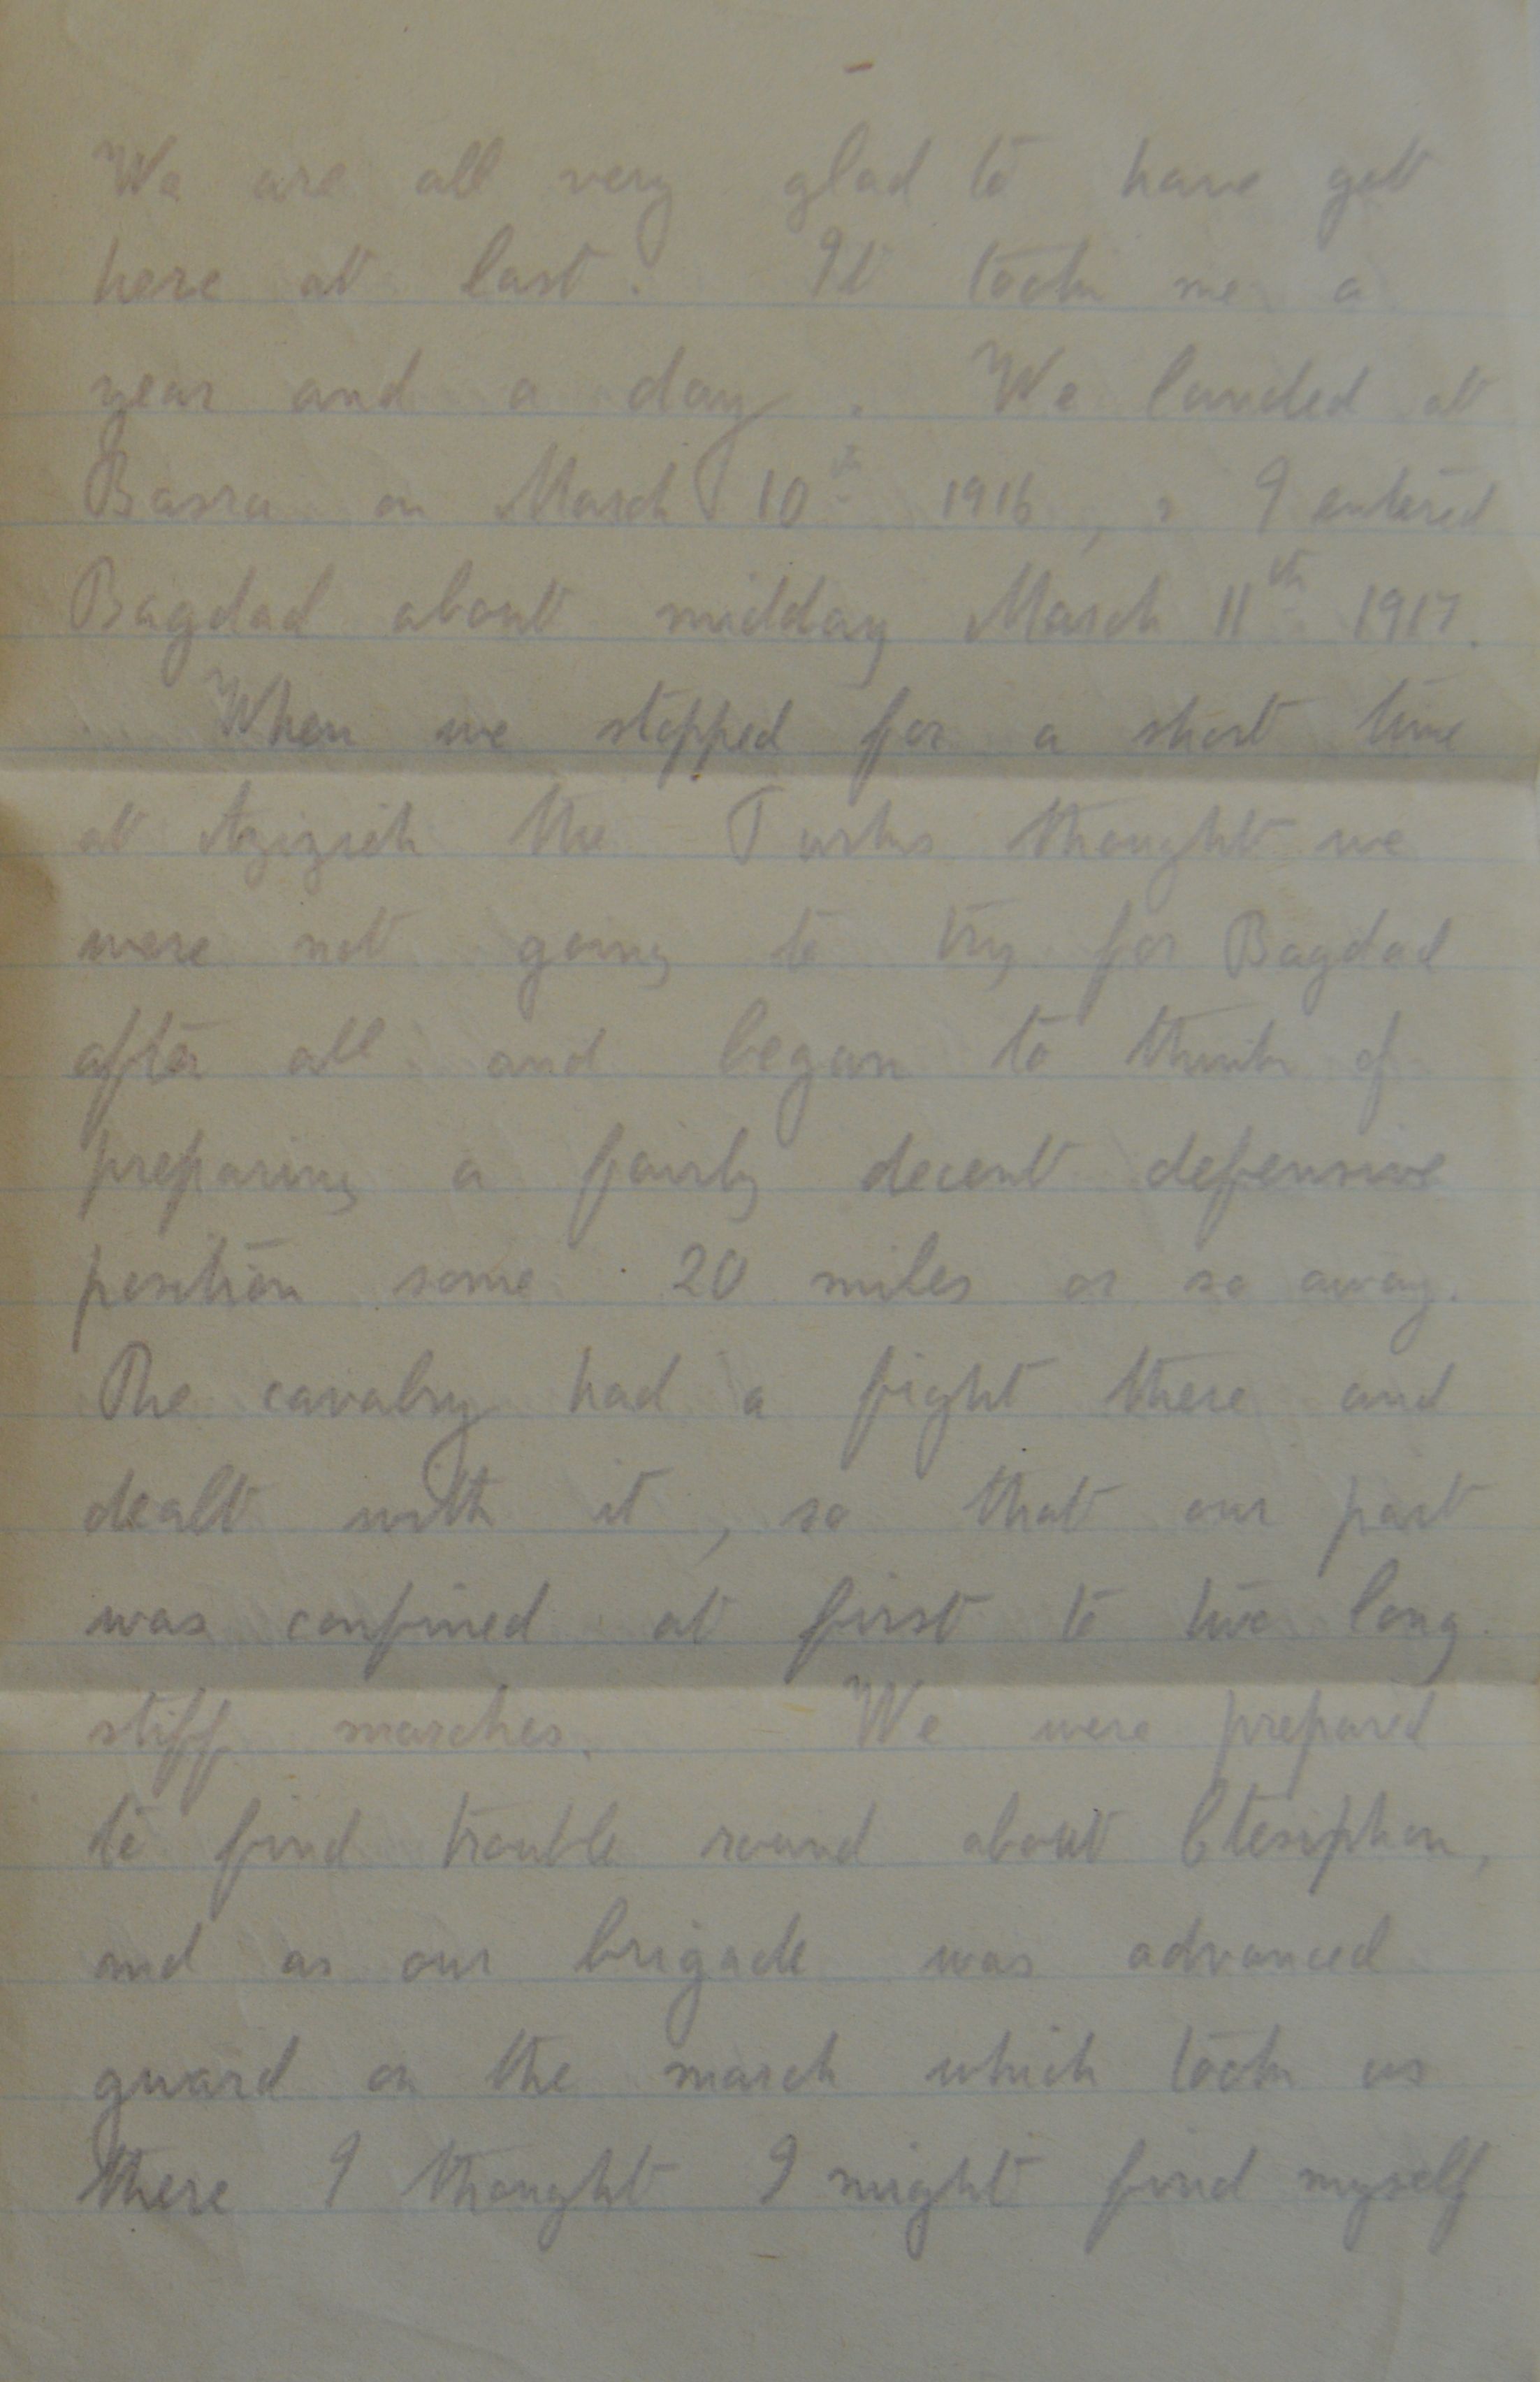 We are all very glad to have got
here at last. It took me a
year and a day. We landed at
Basra on March 10th 1916, & I entered
Bagdad about midday March 11th 1917.
When we stopped for a short time
at Azizieh the Turks thought we
were not going to try for Bagdad
after all and began to think of
preparing a fairly decent defensive
position some 20 miles or so away.
The cavalry had a fight there and
dealt with it, so that our part
was confined at first to two long
stiff marches. We were prepared
to find trouble round about Ctesiphon,
and as our brigade was advanced
guard on the march which took us
there I thought I might find myself